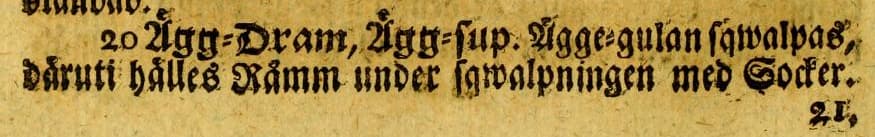 20 Ägg-Dram, Ägg-sup. Ägge-gulan sqwalpas,
däruti hälles Rämm under sqwalpningen med Socker.
21,